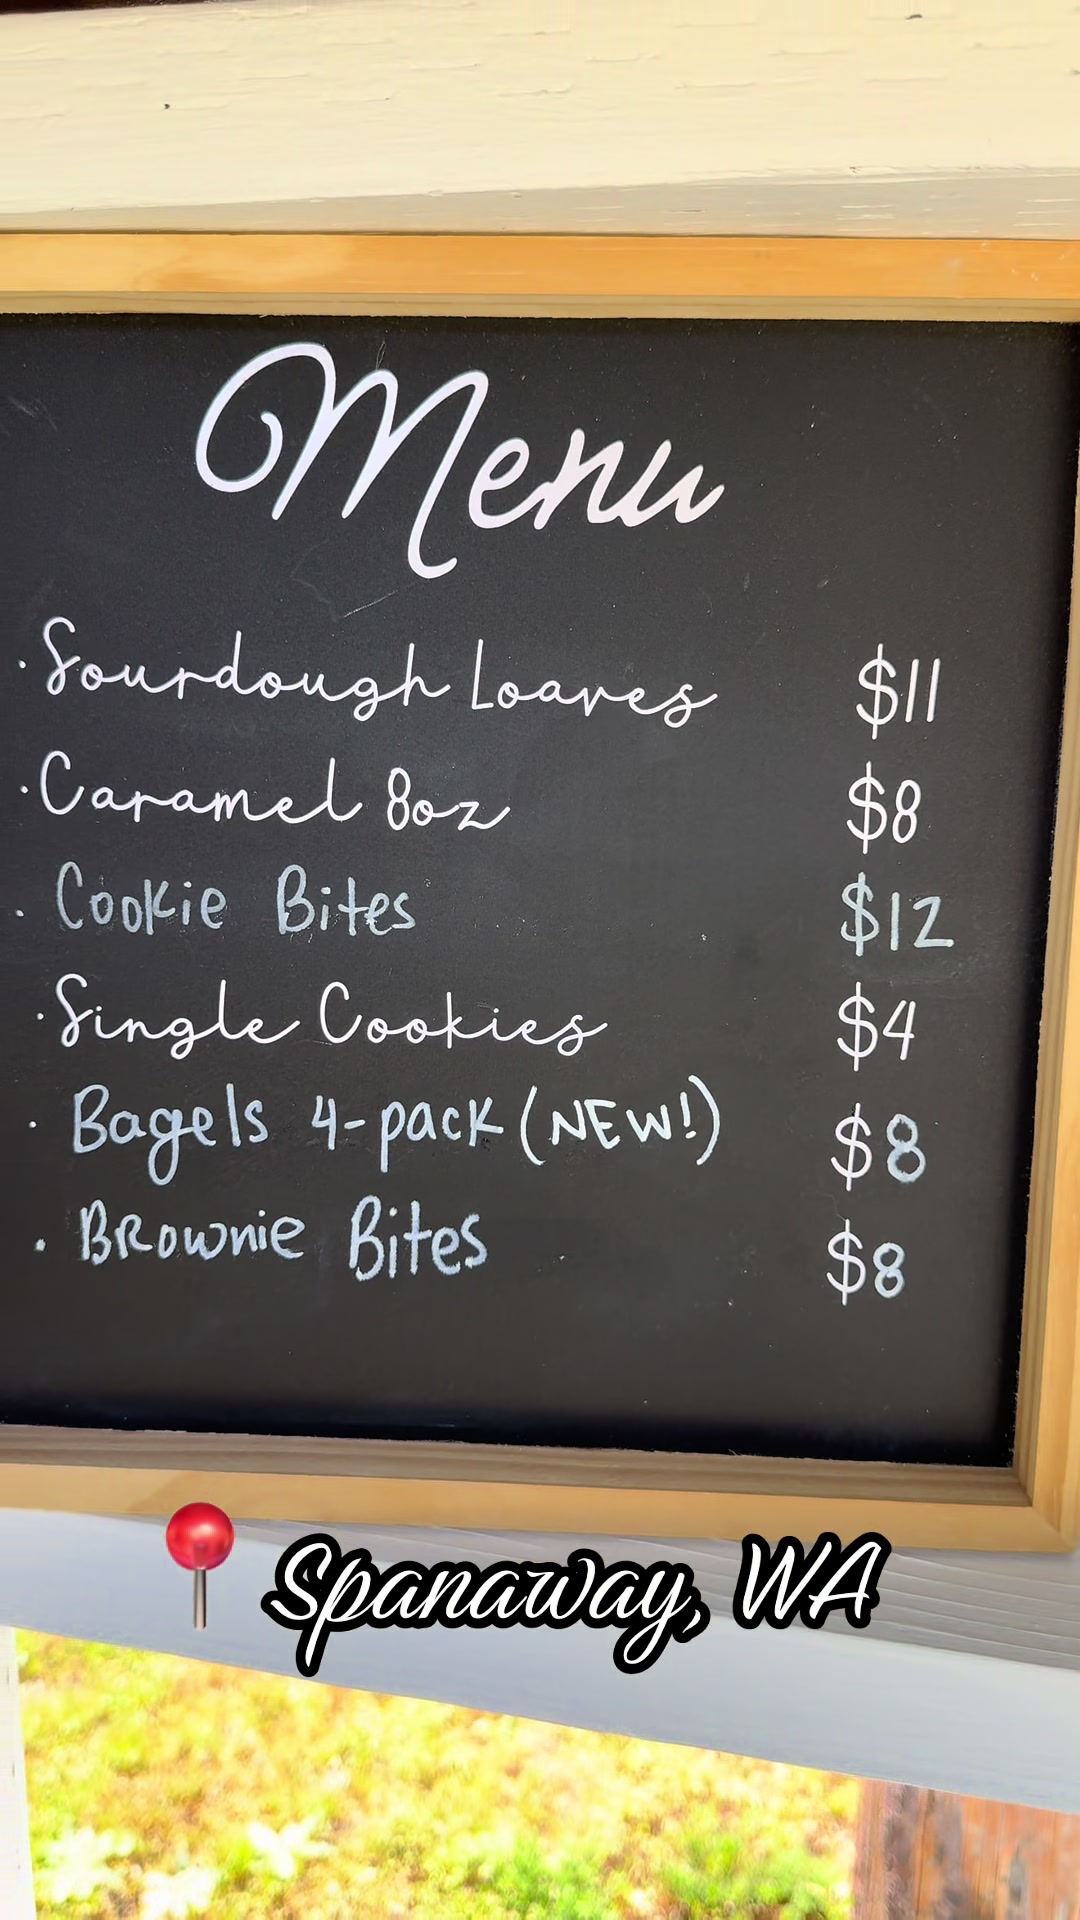 Menu
· Sourdough Loaves $11
· Caramel 8oz $8
· Cookie Bites $12
· Single Cookies $4
· Bagels 4-pack (NEW!) $8
· Brownie Bites $8
📍 Spanaway, WA